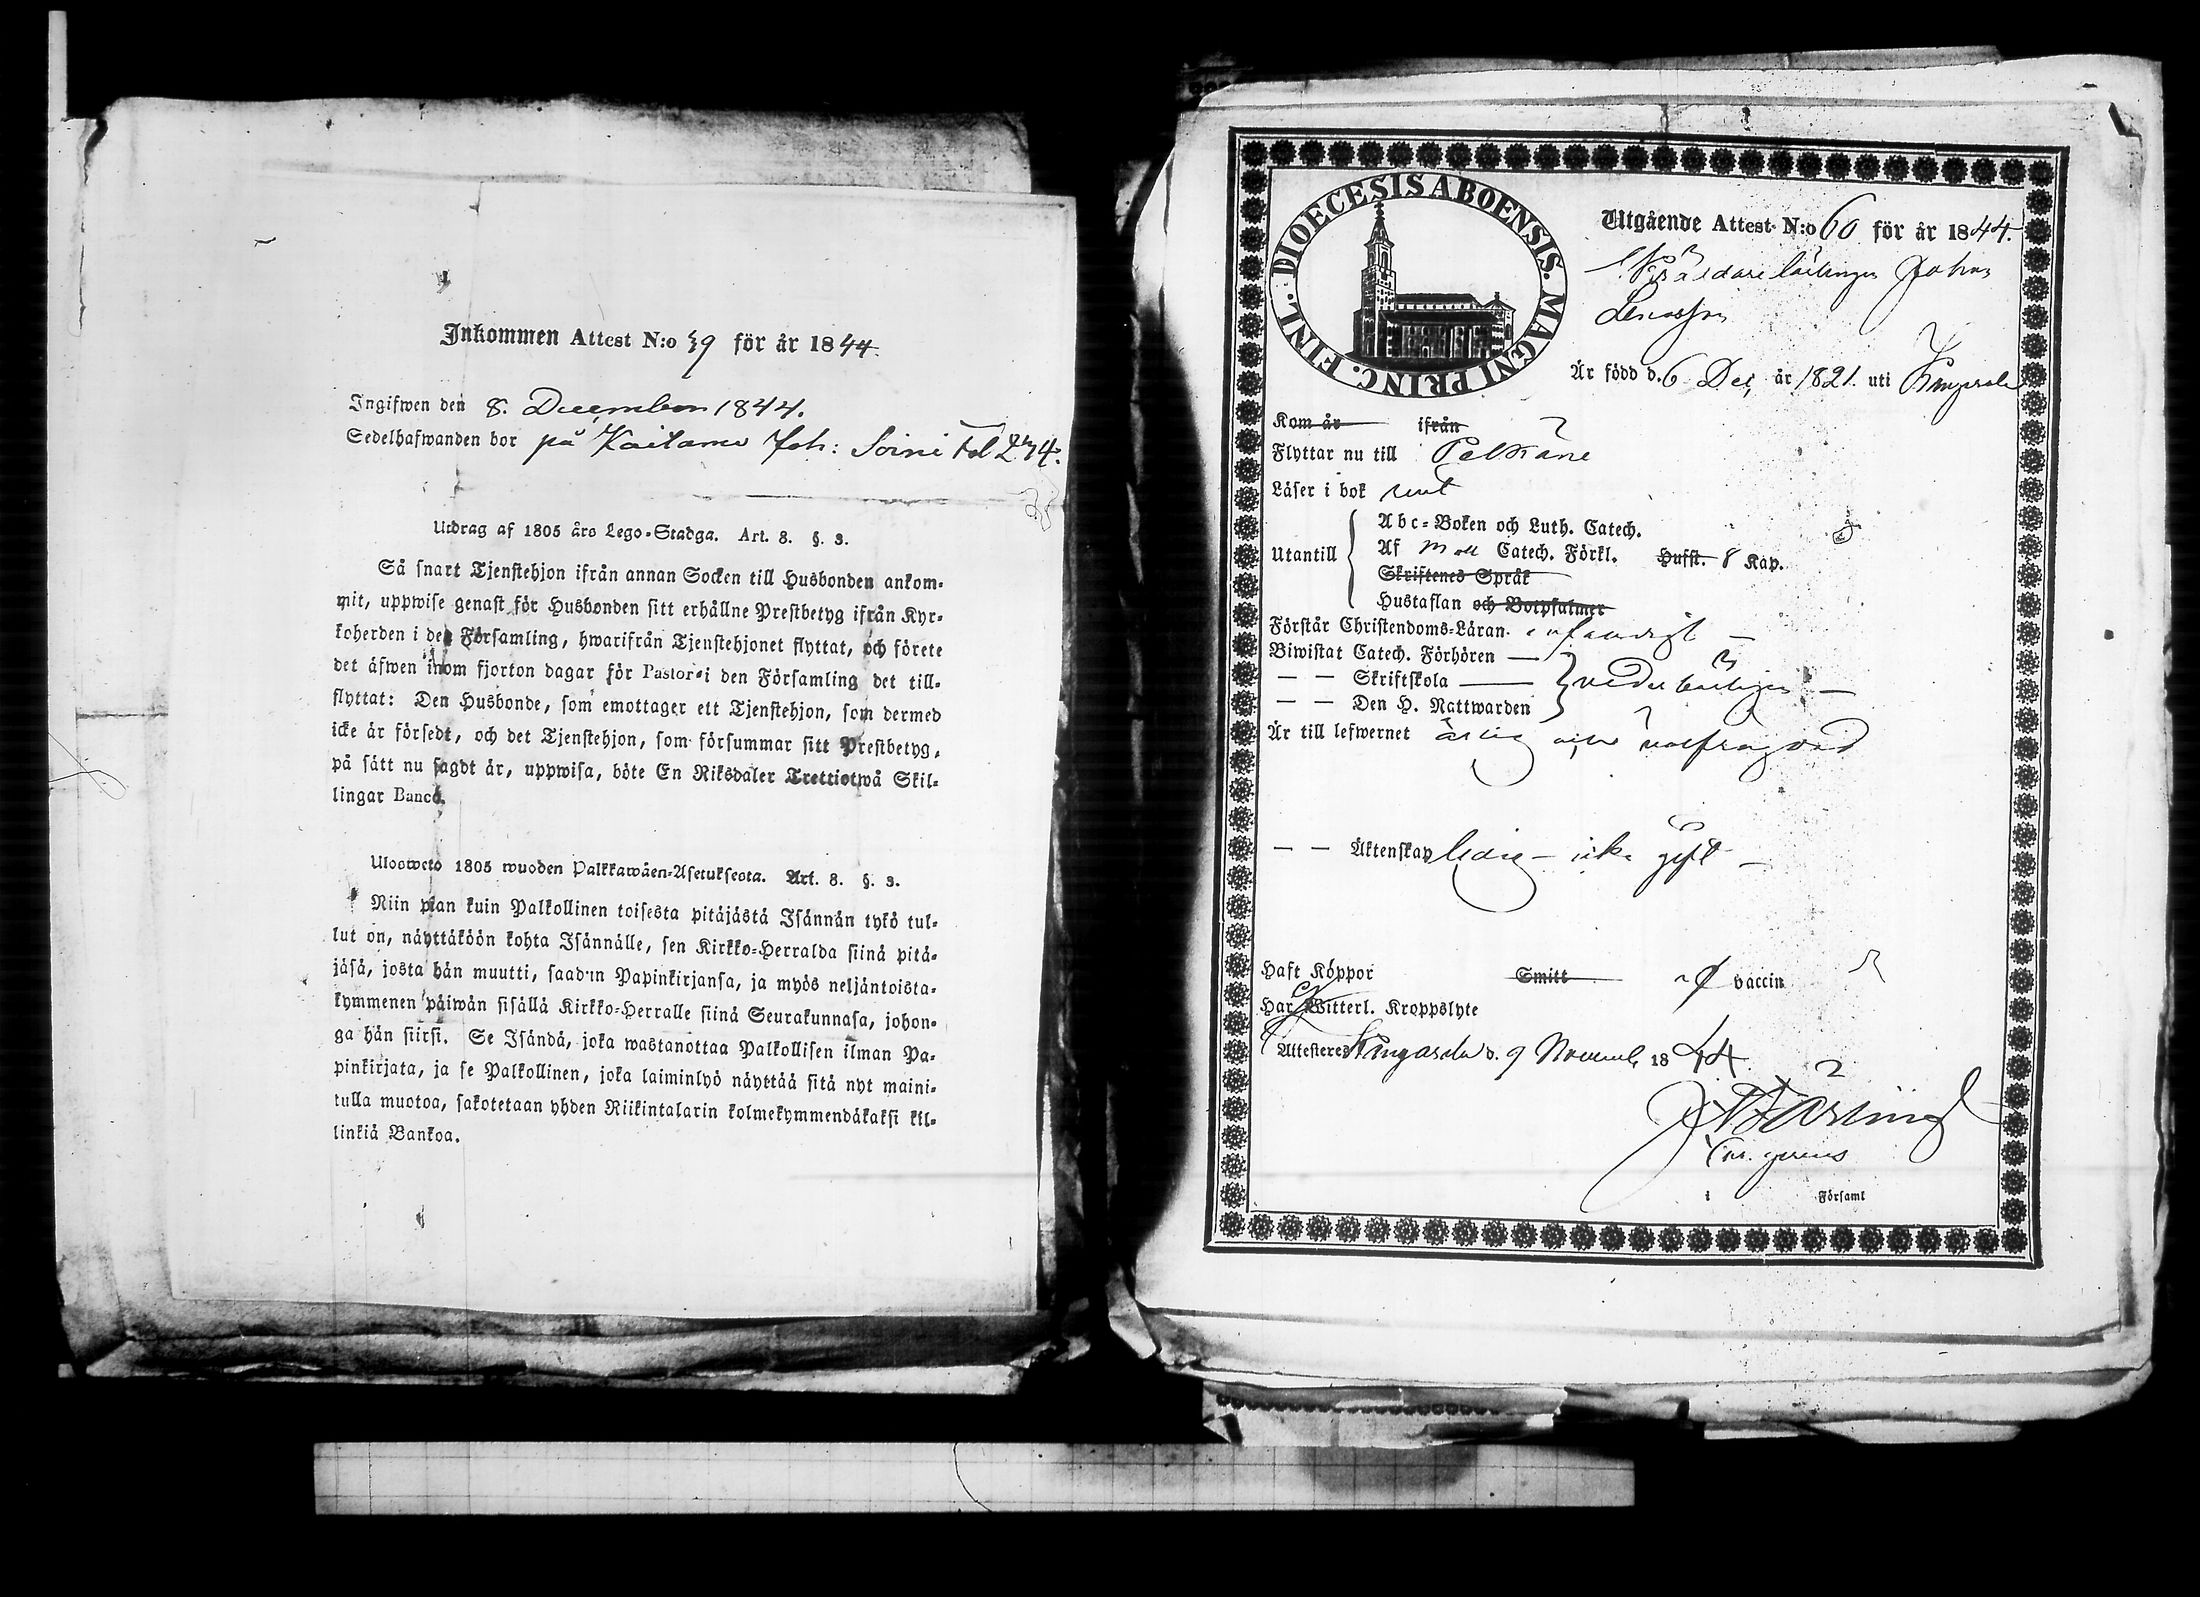 Inkommen Attest N:o 39 för år 1844.
Ingifwen den 8. December 1844.
Sedelhafwanden bor på Kaitamo Joh: Soini Fol 274.
Utdrag af 1805 års Lego-Stadga. Art. 8. §. 3.
Så snart Tjenstehjon ifrån annan Socken till Husbonden ankom-
mit, uppwise genast för Husbonden sitt erhållne Prestbetyg ifrån Kyr-
koherden i den Församling, hwarifrån Tjenstehjonet flyttat, och förete
det äfwen inom fjorton dagar för Pastor i den Församling det till-
flyttat: Den Husbonde, som emottager ett Tjenstehjon, som dermed
icke är försedt, och det Tjenstehjon, som försummar sitt Prestbetyg,
på sätt nu sagdt är, uppwisa, böte En Riksdaler Trettiotwå Skil-
lingar Banco.
Ulosweto 1805 wuoden Palkkawäen-Asetuksesta. Art. 8. §. 3.
Niin pian kuin Palkollinen toisesta pitäjästä Isännän tykö tul-
lut on, näyttäköön kohta Isännälle, sen Kirkko-Herralda siinä pitä-
jäsä, josta hän muutti, saadun Papinkirjansa, ja myös neljäntoista-
kymmenen päiwän sisällä Kirkko-Herralle siinä Seurakunnasa, johon-
ga hän siirsi. Se Isändä, joka wastanottaa Palkollisen ilman Pa-
pinkirjata, ja se Palkollinen, joka laiminlyö näyttää sitä nyt maini-
tulla muotoa, sakotetaan yhden Riikintalarin kolmekymmendäkaksi kil-
linkiä Bankoa.
DIOECESIS ABOENSIS. MAGNI PRINC. FINL.
Utgående Attest N:o 60 för år 1844.
Skräddare lärlingen Johan
Är född d. 6 Dec, år 1821. uti Kangasala
Kom år ifrån
Flyttar nu till Pelkäne
Läser i bok rent
Utantill
Abc-Boken och Luth. Catech.
Af Moll Catech. Förkl. Hufst. 8 Kap.
Skriftenes Språk
Hustaflan och Botpsalmer
Förstår Christendoms-Läran
Biwistat Catech. Förhören —
— — Skriftskola — vederbörligen —
— — Den H. Nattwarden
Är till lefwernet ärlig och wälfrägdad
— — Äktenskap ledig — icke gift —
Haft Köppor Smitt vaccin
Har Witterl. Kroppslyte
Attesteres Kangasala d. 9 Novemb. 1844
i Församl